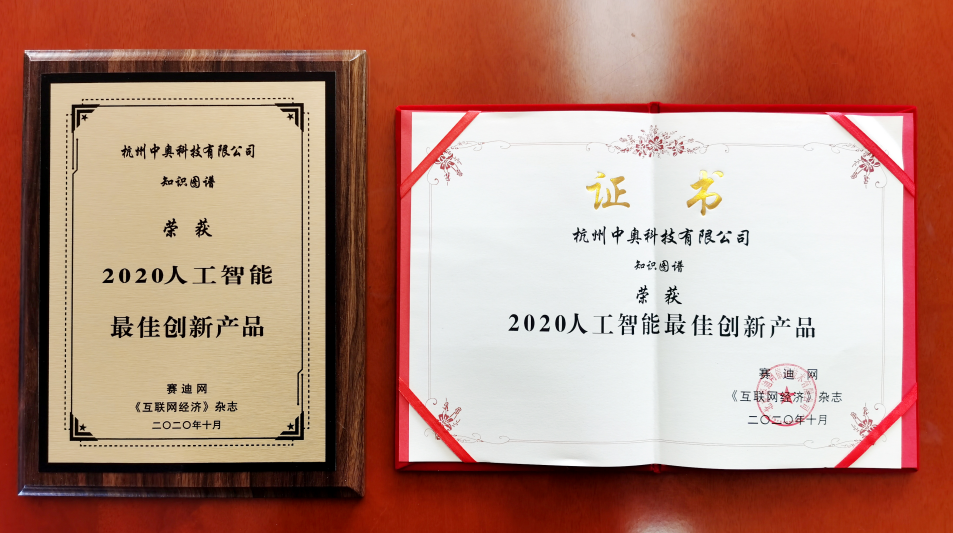 杭州中奥科技有限公司
知识图谱
荣 获
2020人工智能
最佳创新产品
赛迪网
《互联网经济》杂志
二〇二〇年十月
证 书
杭州中奥科技有限公司
知识图谱
荣 获
2020人工智能最佳创新产品
赛 迪 网
《互联网经济》杂志
二〇二〇年十月